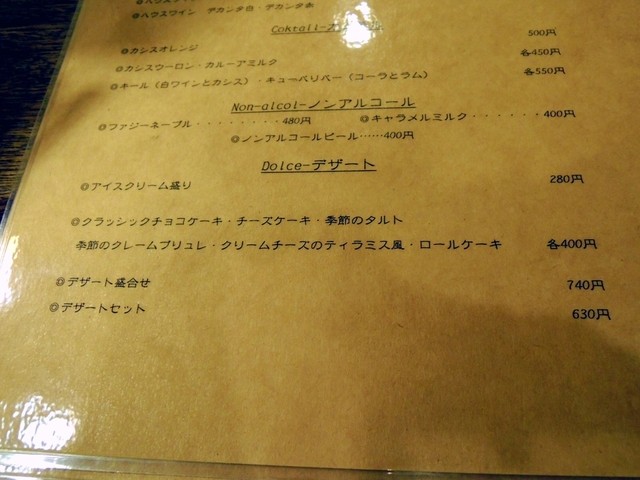 ◎ハウスワイン デカンタ白・デカンタ赤
Coktail-
500円
◎カシスオレンジ
◎カシスウーロン・カルーアミルク 各450円
◎キール(白ワインとカシス)・キューバリバー(コーラとラム) 各550円
Non-alcol-ノンアルコール
◎ファジーネーブル・・・・・・・・480円 ◎キャラメルミルク・・・・・・400円
◎ノンアルコールビール……400円
Dolce-デザート
◎アイスクリーム盛り 280円
◎クラッシックチョコケーキ・チーズケーキ・季節のタルト
季節のクレームブリュレ・クリームチーズのティラミス風・ロールケーキ 各400円
◎デザート盛合せ 740円
◎デザートセット 630円